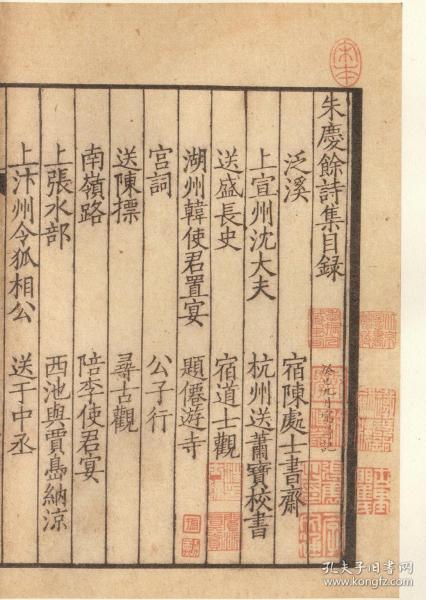 朱慶餘詩集目録
泛溪 宿陳處士書齋
上宣州沈大夫 杭州送蕭寶校書
送盛長史 宿道士觀
湖州韓使君置宴 題僊遊寺
宮詞 公子行
送陳摽 尋古觀
南嶺路 陪李使君宴
上張水部 西池與賈島納涼
上汴州令狐相公 送于中丞
孔夫子旧书网
www.kongfz.com